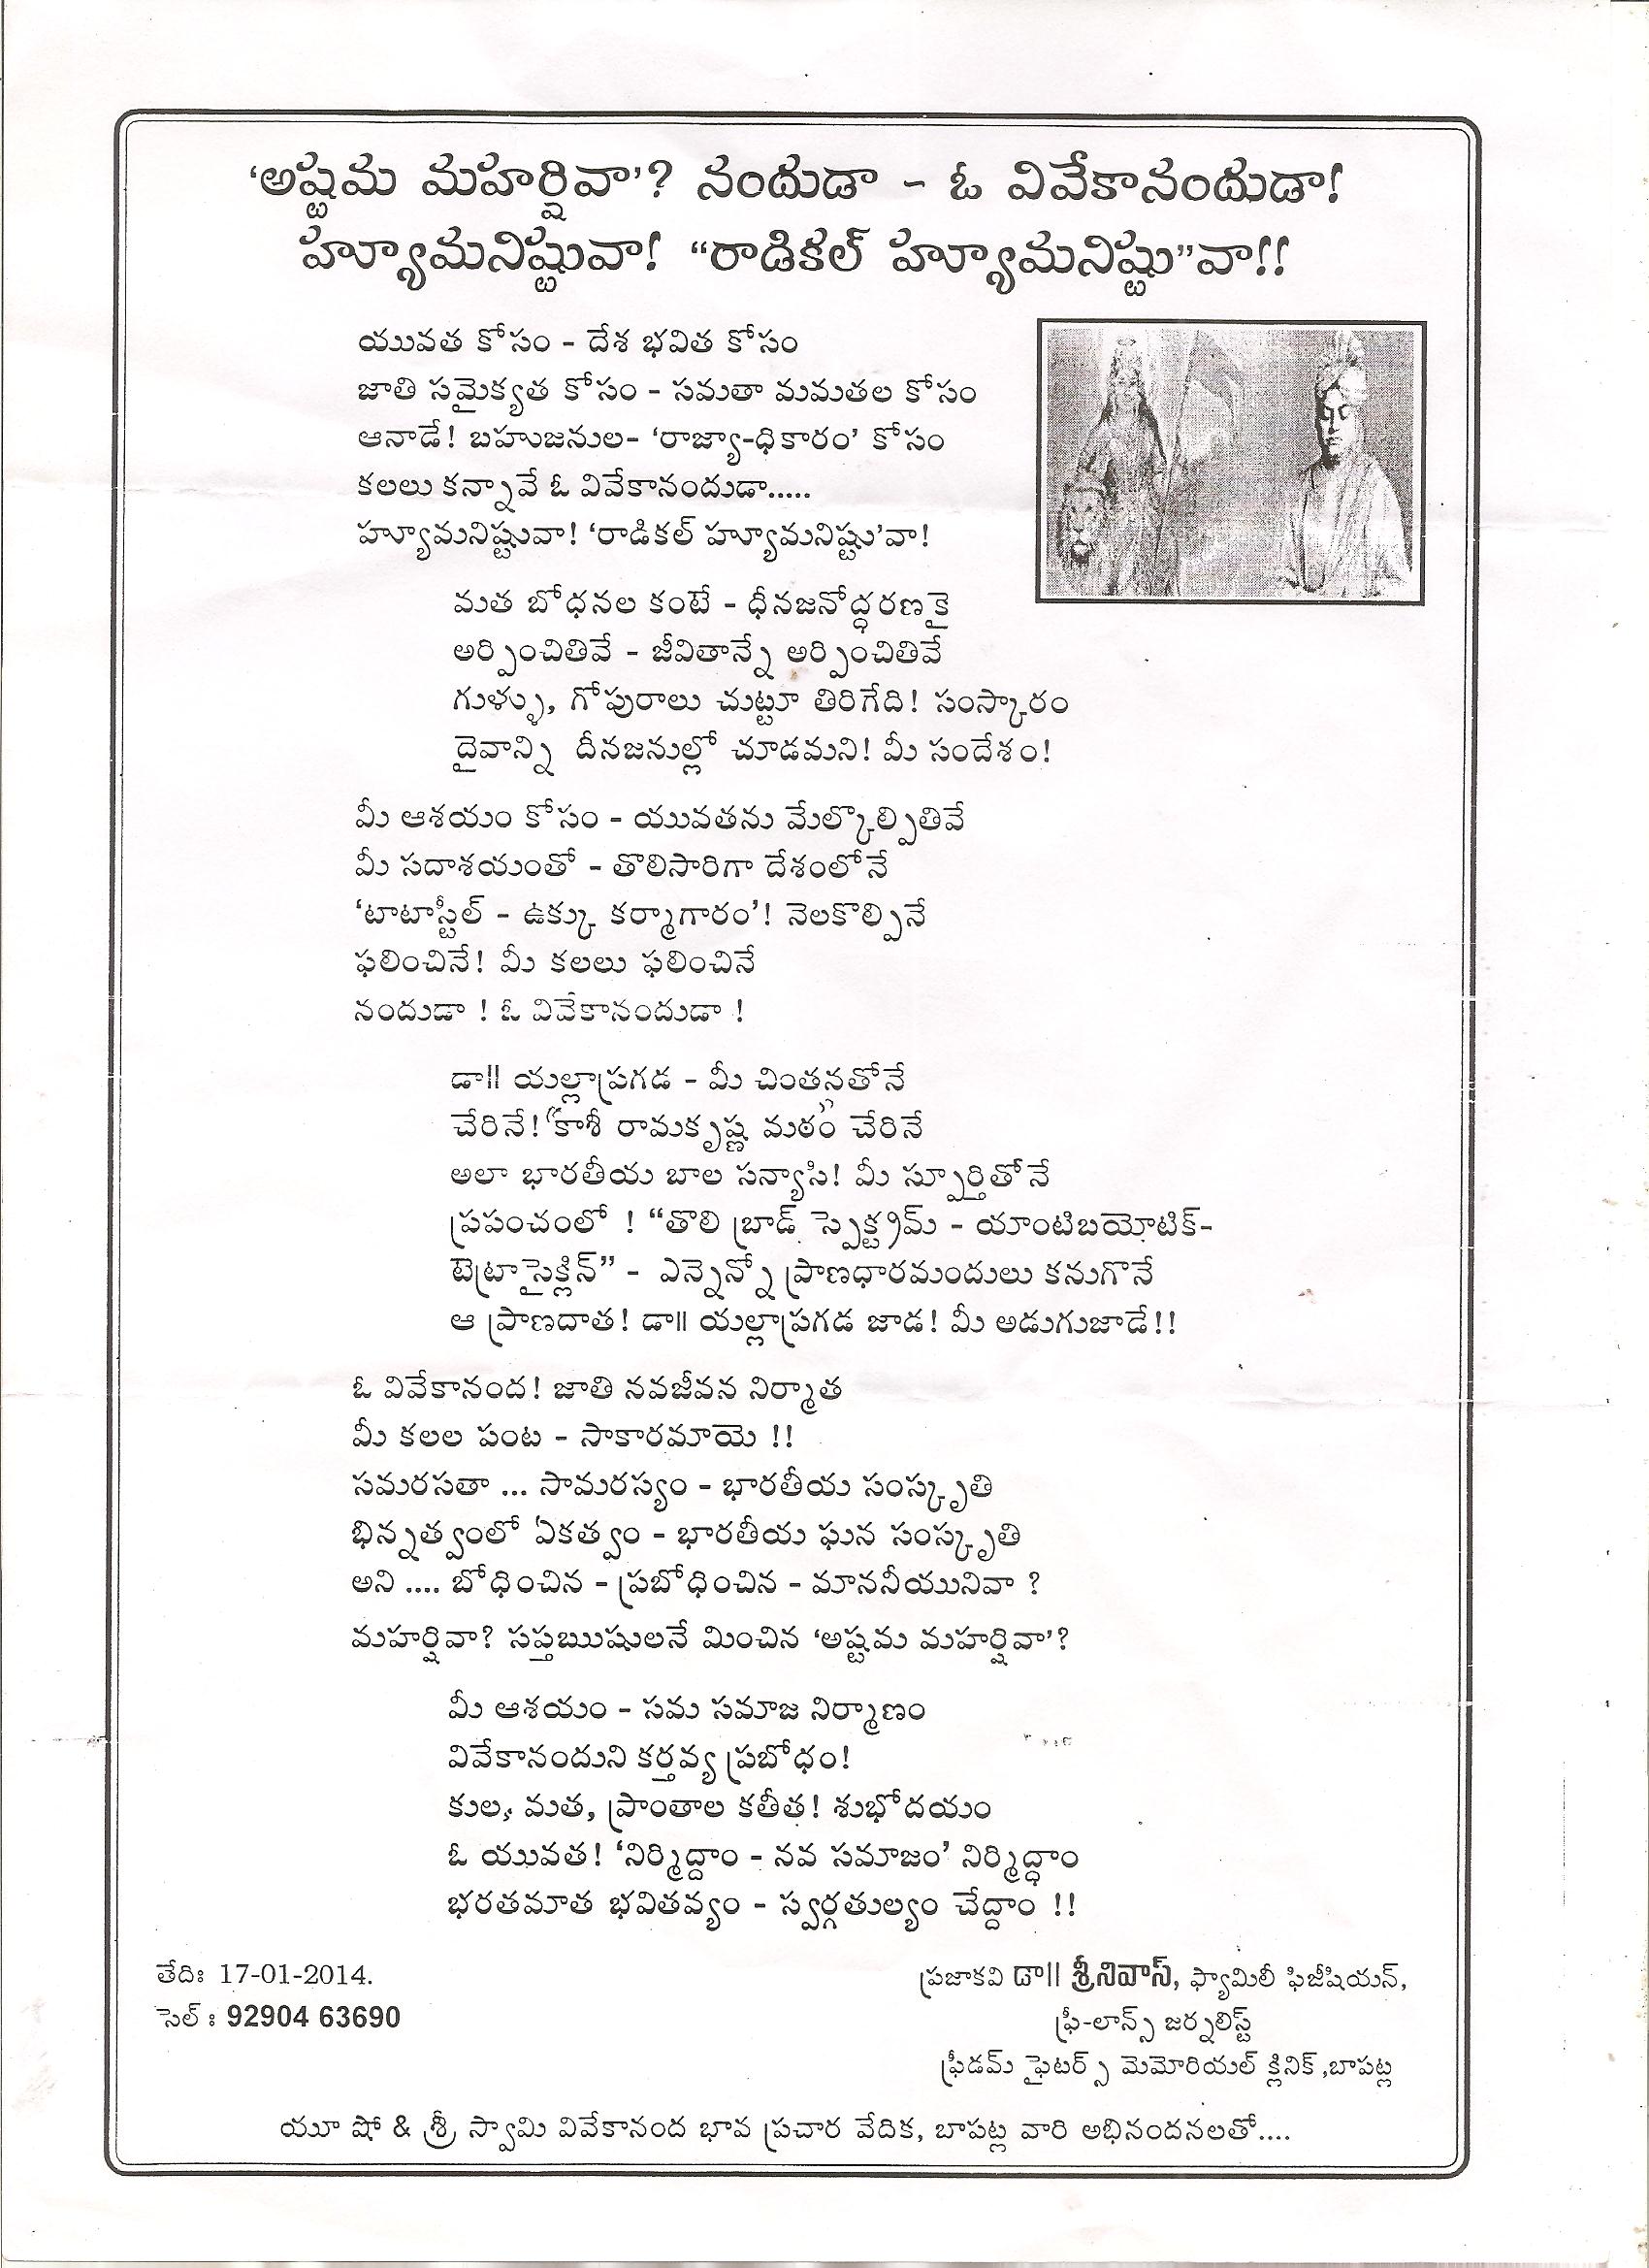 ‘అష్టమ మహర్షివా’? నందుడా - ఓ వివేకానందుడా!
హ్యూమనిష్టువా! “రాడికల్ హ్యూమనిష్టు”వా!!
యువత కోసం - దేశ భవిత కోసం
జాతి సమైక్యత కోసం - సమతా మమతల కోసం
ఆనాడే! బహుజనుల- ‘రాజ్యా-ధికారం’ కోసం
కలలు కన్నావే ఓ వివేకానందుడా.....
హ్యూమనిష్టువా! ‘రాడికల్ హ్యూమనిష్టు’వా!
మత బోధనల కంటే - ధీనజనోద్ధరణకై
అర్పించితివే - జీవితాన్నే అర్పించితివే
గుళ్ళు, గోపురాలు చుట్టూ తిరిగేది! సంస్కారం
దైవాన్ని దీనజనుల్లో చూడమని! మీ సందేశం!
మీ ఆశయం కోసం - యువతను మేల్కొల్పితివే
మీ సదాశయంతో - తొలిసారిగా దేశంలోనే
‘టాటాస్టీల్ - ఉక్కు కర్మాగారం’! నెలకొల్పినే
ఫలించినే! మీ కలలు ఫలించినే
నందుడా ! ఓ వివేకానందుడా !
డా॥ యల్లాప్రగడ - మీ చింతనతోనే
చేరినే! “కాశీ రామకృష్ణ మఠం” చేరినే
అలా భారతీయ బాల సన్యాసి! మీ స్ఫూర్తితోనే
ప్రపంచంలో ! “తొలి బ్రాడ్ స్పెక్ట్రమ్ - యాంటిబయోటిక్-
టెట్రాసైక్లిన్” - ఎన్నెన్నో ప్రాణధారమందులు కనుగొనే
ఆ ప్రాణదాత! డా॥ యల్లాప్రగడ జాడ! మీ అడుగుజాడే!!
ఓ వివేకానంద! జాతి నవజీవన నిర్మాత
మీ కలల పంట - సాకారమాయె !!
సమరసతా ... సామరస్యం - భారతీయ సంస్కృతి
భిన్నత్వంలో ఏకత్వం - భారతీయ ఘన సంస్కృతి
అని .... బోధించిన - ప్రబోధించిన - మాననీయునివా ?
మహర్షివా? సప్తఋషులనే మించిన ‘అష్టమ మహర్షివా’?
మీ ఆశయం - సమ సమాజ నిర్మాణం
వివేకానందుని కర్తవ్య ప్రబోధం!
కుల, మత, ప్రాంతాల కతీత! శుభోదయం
ఓ యువత! ‘నిర్మిద్దాం - నవ సమాజం’ నిర్మిద్ధాం
భరతమాత భవితవ్యం - స్వర్గతుల్యం చేద్దాం !!
తేదిః 17-01-2014.
సెల్ : 92904 63690
ప్రజాకవి డా॥ శ్రీనివాస్, ఫ్యామిలీ ఫిజీషియన్,
ఫ్రీ-లాన్స్ జర్నలిస్ట్
ఫ్రీడమ్ ఫైటర్స్ మెమోరియల్ క్లినిక్,బాపట్ల
యూ షో & శ్రీ స్వామి వివేకానంద భావ ప్రచార వేదిక, బాపట్ల వారి అభినందనలతో....